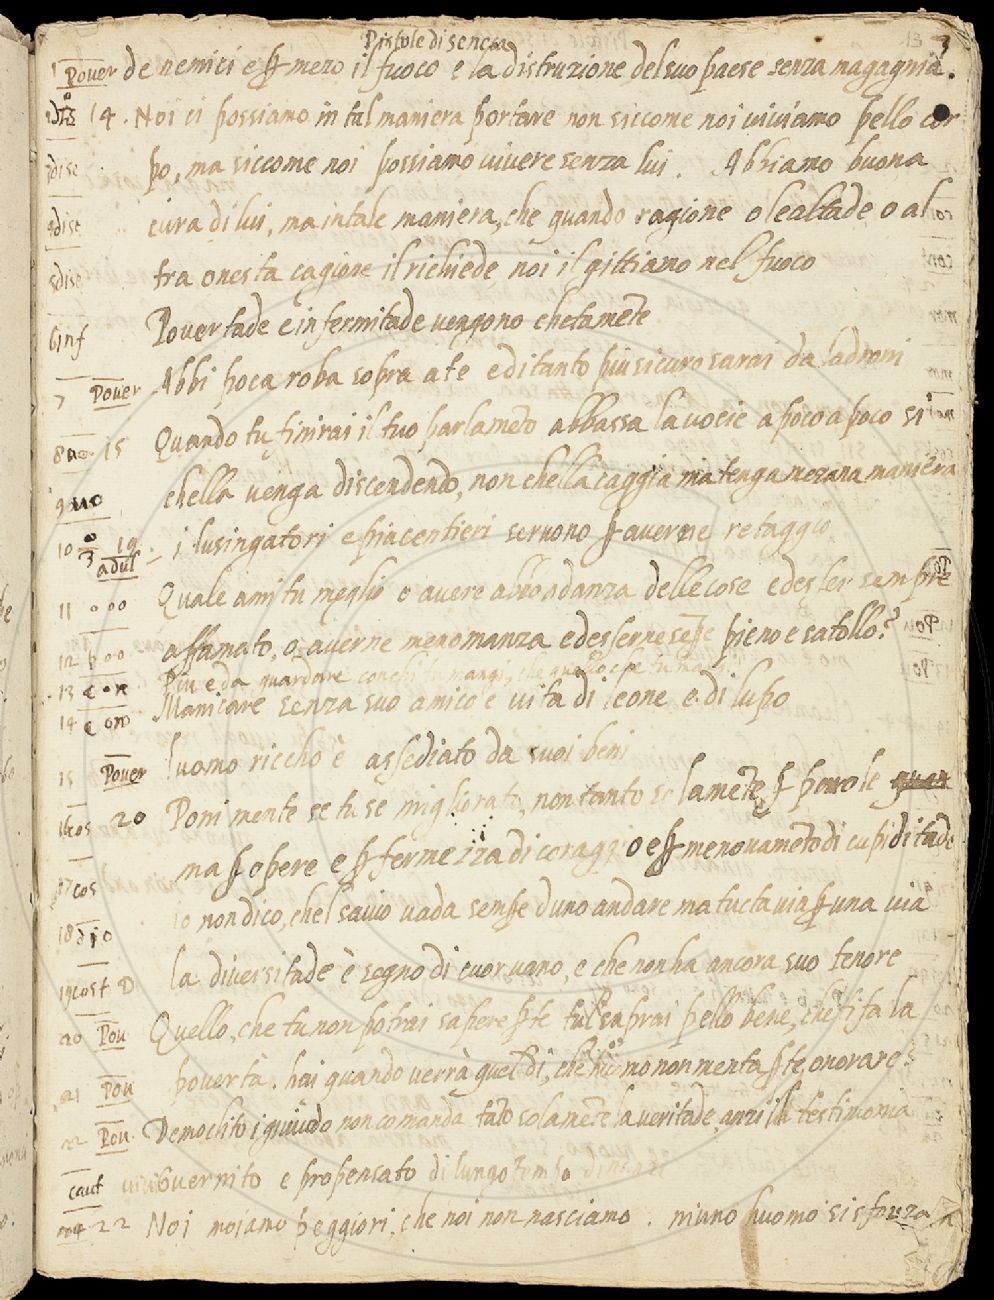 Pistole di seneca 3
Pover de nemici e ꝑ mezo il fuoco e la distruzione del suo paese senza magagnia.
14. Noi ci possiamo in tal maniera portare non siccome noi viviamo pello cor
po, ma siccome noi possiamo vivere senza lui. Abbiamo buona
cura di lui, ma in tale maniera, che quando ragione o lealtade o al
tra onesta cagione il richiede, noi il gittiamo nel fuoco
6 inf Povertade e infermitade vengono chetamẽte
7 Pover Abbi poca roba sopra a te e di tanto più sicuro sarai da ladroni
8 15 Quando tu finirai il tuo parlamẽto abbassa la vocie a poco a poco si
9 chella venga discendendo, non chella caggia ma tenga mezana maniera
10 19 adul i lusingatori e piacentieri servono ꝑ averne retaggio
11 Quale ami tu meglio o avere abbondanza delle cose ed esser sempre
12 affamato, o averne menomanza ed esserne sẽpe pieno e satollo?
13 Piu e da guardare con chi tu mangi, che quello che tu
14 Manicare senza suo amico e vita di leone e di lupo
15 Pover luomo riccho è assediato da suoi beni
16 cos 20 Poni mente se tu se migliorato, non tanto solamẽte ꝑ parole
17 cos ma ꝑ opere e ꝑ fermezza di coraggio e ꝑ menovamẽto di cupiditade
18 io non dico, chel savio vada sempe duno andare ma tuctavia ꝑ una via
19 cost D la diversitade è segno di cuor vano, e che non ha ancora suo tenore
20 Pou Quello, che tu non potrai sapere ꝑ te tul saprai pello bene, che ti fa la
21 Pou povertà. hai quando verrà quel di, che niuno non menta ꝑ te onorare?
22 Pou. Democlito non comanda tãto solamẽte la veritade anzi la testimonia
caut e propensato di lungo tempo dinanzi
22 Noi moiamo peggiori, che noi non nasciamo. niuno huomo si sforza